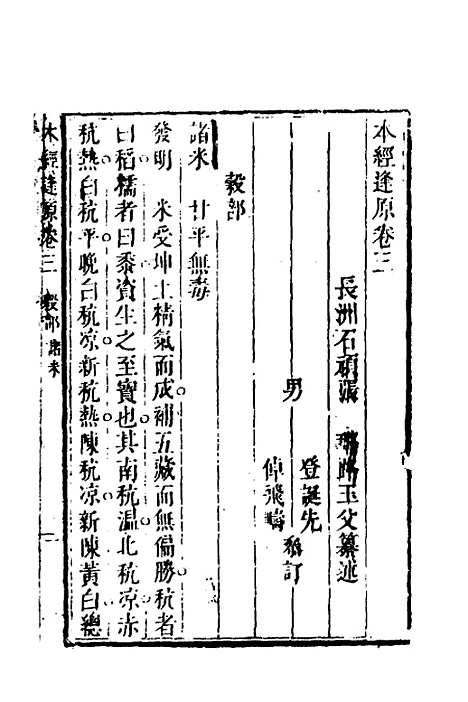 本經逢原卷三
長洲石頑張 璐路玉父纂述
男 登誕先
倬飛疇 叅訂
穀部
諸米 甘平無毒
發明 米受坤土精氣而成補五藏而無偏勝秔者
曰稻糯者曰黍資生之至寶也其南秔温北秔凉赤
秔熱白秔平晚白秔凉新秔熱陳秔凉新陳黃白總
本經逢原卷三 穀部 諸米 一